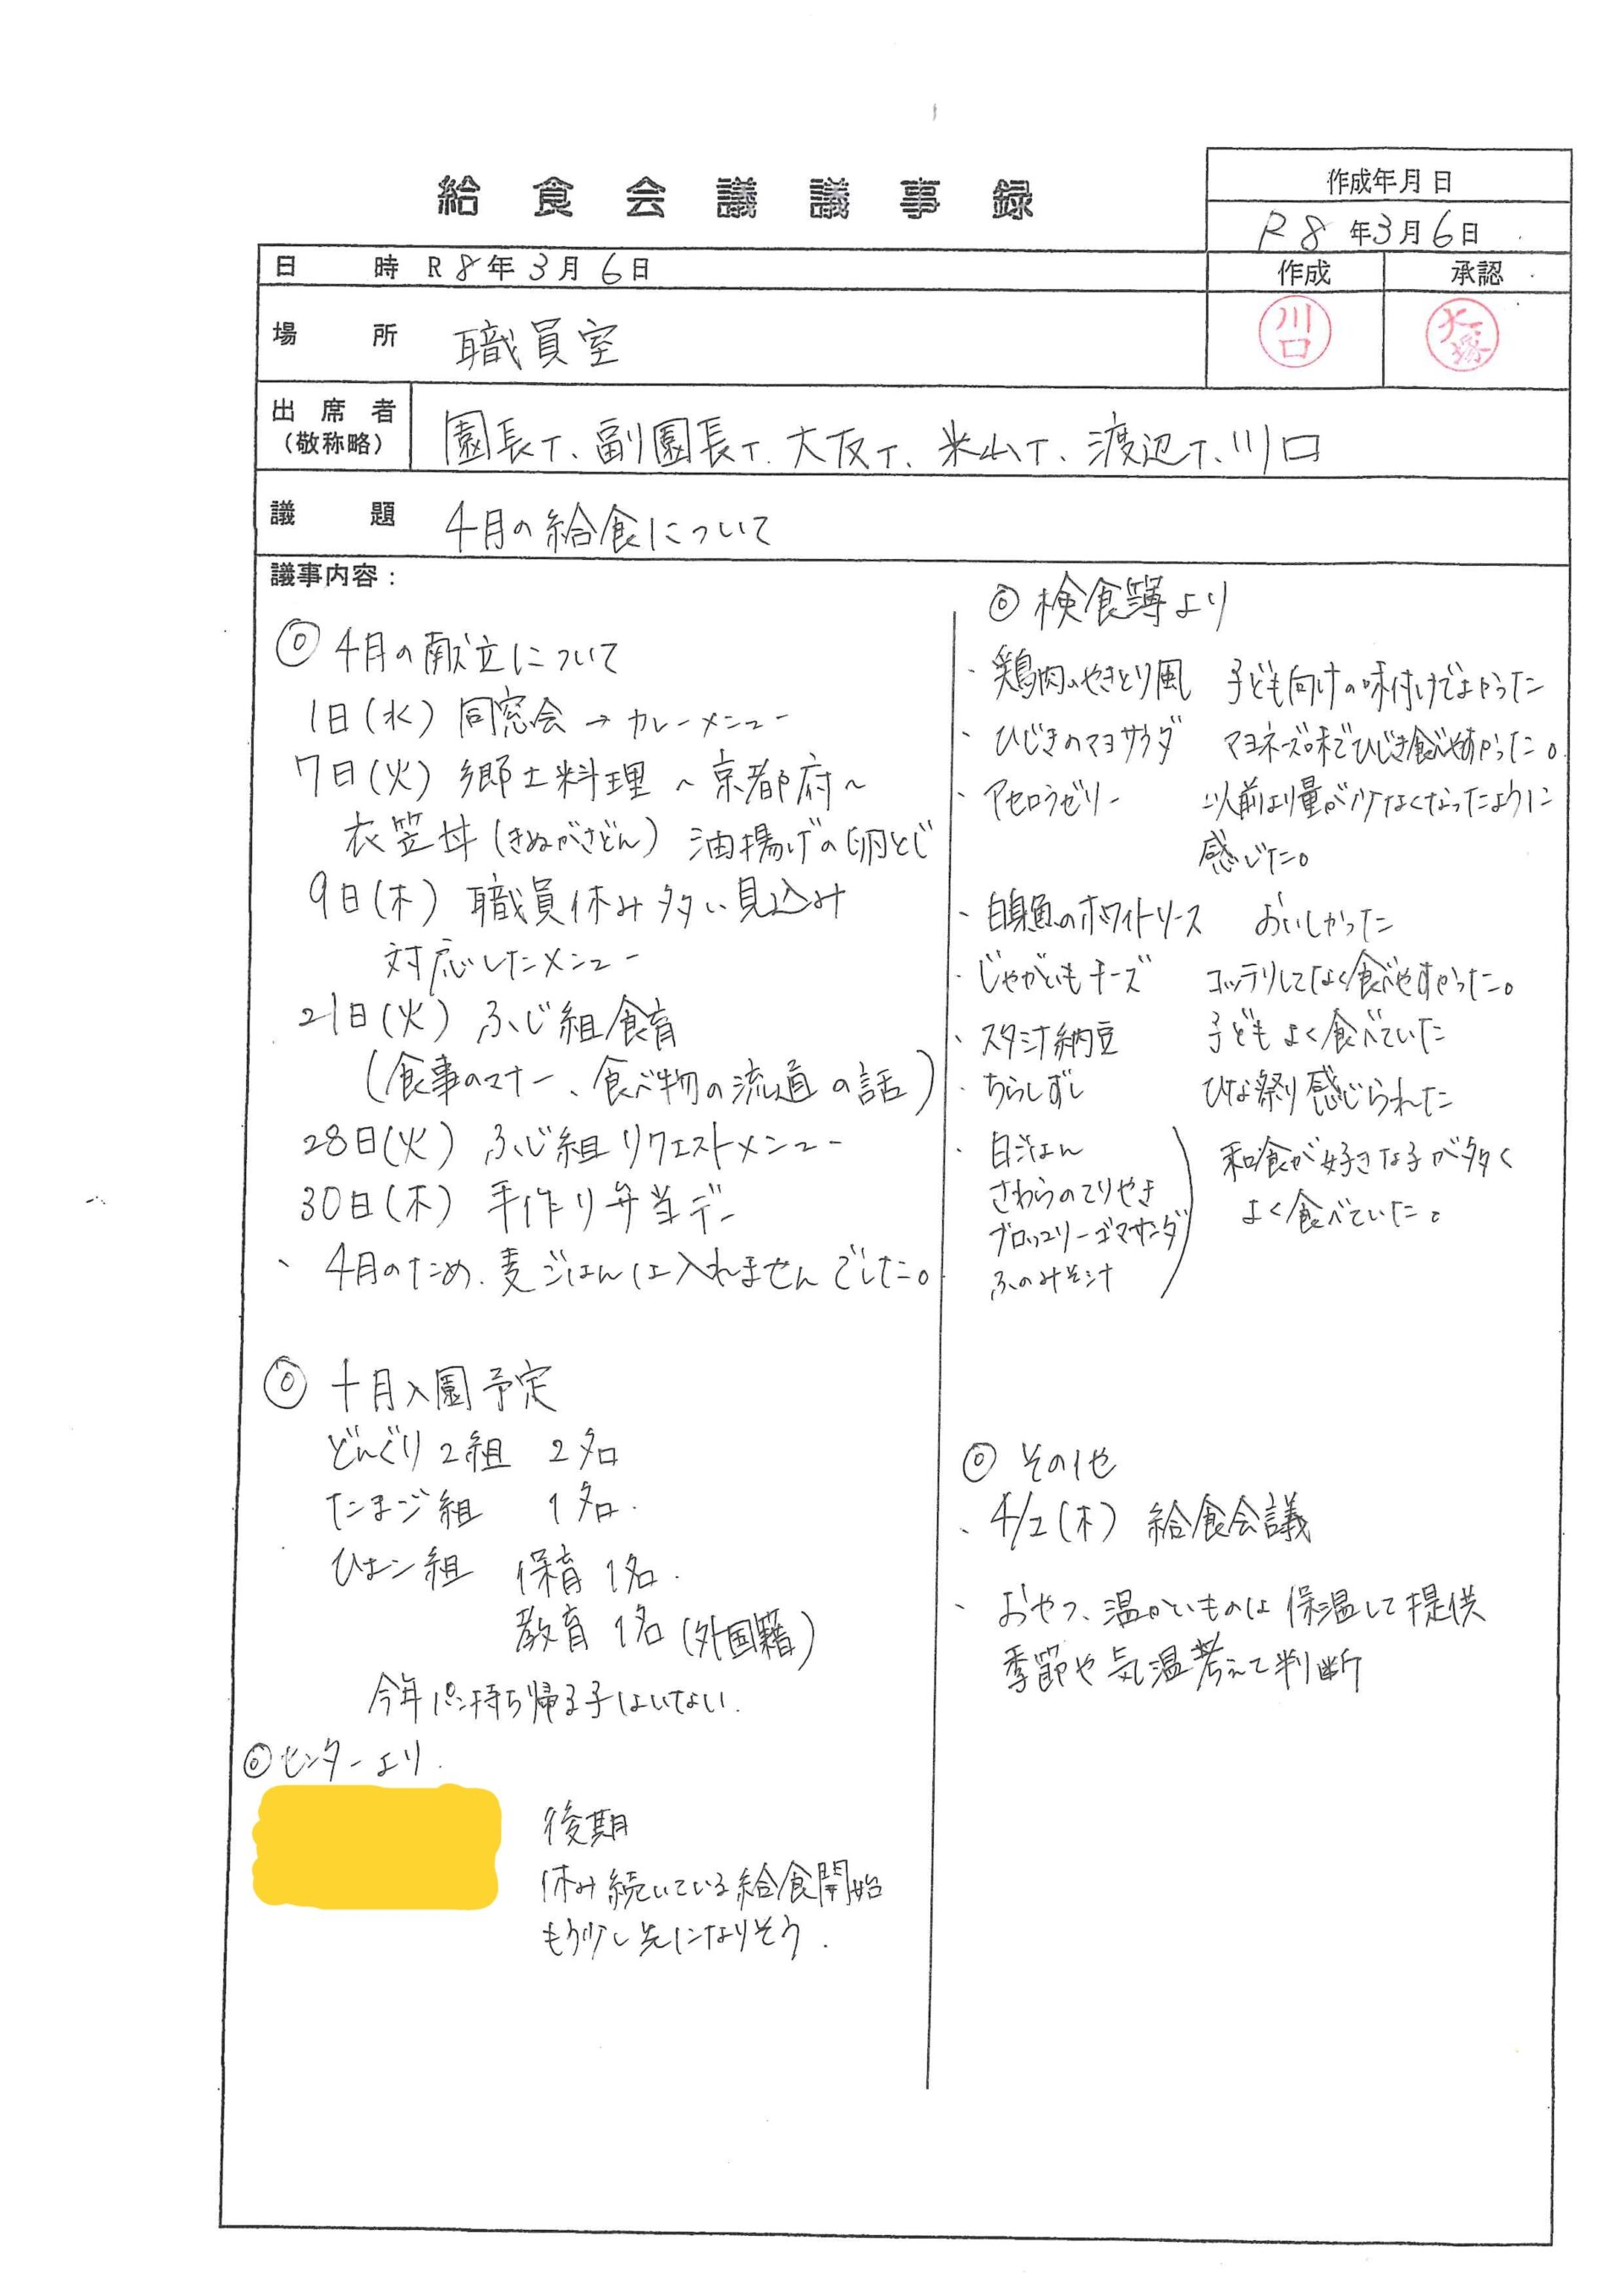 給食会議議事録
作成年月日
R8年3月6日
作成 承認
川口 大塚
日時 R8年3月6日
場所 職員室
出席者(敬称略) 園長T、副園長T、大友T、米山T、渡辺T、川口
議題 4月の給食について
議事内容:
◎ 4月の献立について
1日(水) 同窓会→カレーメニュー
7日(火) 郷土料理~京都府~
衣笠丼(きぬがさどん) 油揚げの卵とじ
9日(木) 職員休み多い見込み
対応したメニュー
21日(火) ふじ組食育
(食事のマナー、食べ物の流通の話)
28日(火) ふじ組リクエストメニュー
30日(木) 手作り弁当デー
、4月のため、麦ごはんは入れませんでした。
◎ 十月入園予定
どんぐり2組 2名
たまご組 1名.
ひよこ組 保育 1名.
教育 1名(外国籍)
今年パン持ち帰る子はいない.
◎センターより.
後期
休み続いている給食開始
もう少し先になりそう.
◎ 検食簿より
・鶏肉のやきとり風 子ども向けの味付けでよかった
、ひじきのマヨサラダ マヨネーズ味でひじき食べやすかった。
・アセロラゼリー 以前より量が少なくなったように
感じた。
、白身魚のホワイトソース おいしかった
・じゃがいもチーズ コッテリしてなく食べやすかった。
、スタミナ納豆 子どもよく食べていた
・ちらしずし ひな祭り感じられた
・白ごはん
さわらのてりやき
ブロッコリーゴマサラダ
ふのみそ汁
和食が好きな子が多く
よく食べていた。
◎ その他
、4/2(木) 給食会議
、おやつ、温かいものは保温して提供
季節や気温考えて判断